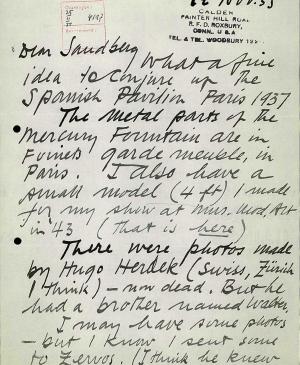 22 NOV. 55
CALDER
PAINTER HILL ROAD
R. F. D. ROXBURY,
CONN. U S A
TEL. & TEL. WOODBURY
Dear Sandberg What a fine
idea to conjure up the
Spanish Pavilion Paris 1937
The metal parts of the
Mercury Fountain are in
garde meuble, in
Paris. I also have a
small model (4 ft) I made
for my show at Mus. Mod. Art
in 43 (that is here)
There were photos made
by Hugo Herdeg (Swiss, Zürich
I think) – now dead. But he
had a brother named Walter.
I may have some photos
– but I know I sent some
to Zervos. (I think he knew